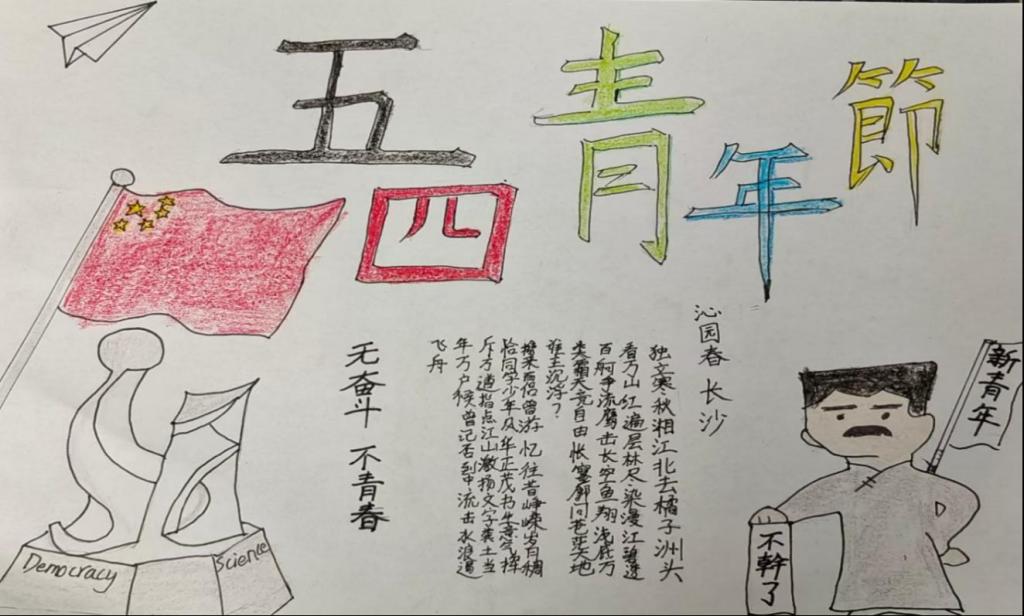 五四青年節
沁园春 长沙
独立寒秋湘江北去橘子洲头
看万山红遍层林尽染漫江碧透
百舸争流鹰击长空鱼翔浅底万
类霜天竞自由怅寥廓问苍茫大地
谁主沉浮？
携来百侣曾游 忆往昔峥嵘岁月稠
恰同学少年风华正茂书生意气挥
斥方遒指点江山激扬文字粪土当
年万户候曾记否到中流击水浪遏
飞舟
无奋斗 不青春
Democracy
Science
新青年
不幹了